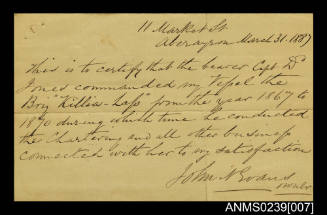 11 Market St
Aberayron March 31. 1887
This is to certify that the bearer Capt. D
Jones commanded my
Brig "Hellias" from the year 1867 to
1870 during which time he conducted
the Chartering and all other business
connected with her to my satisfaction
John N Evans
owner
ANMS0239[007]